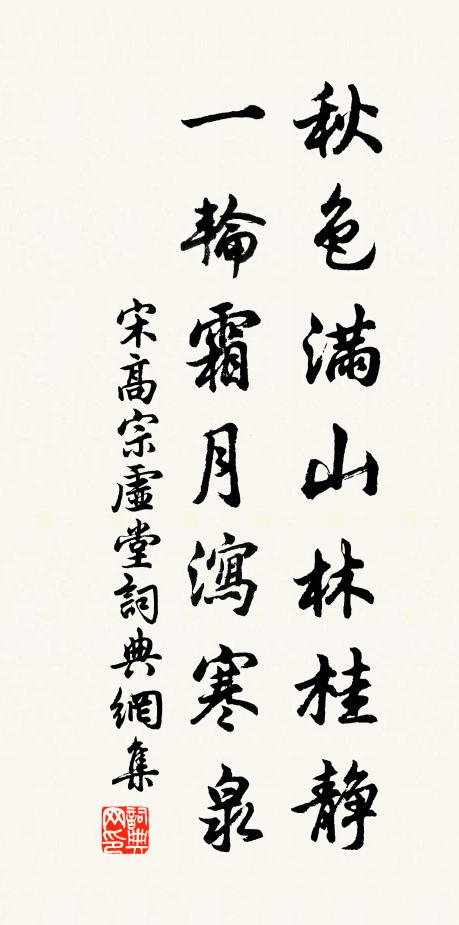 秋色滿山林桂靜
一輪霜月瀉寒泉
宋高宗虛堂詞典網集
詞典網印